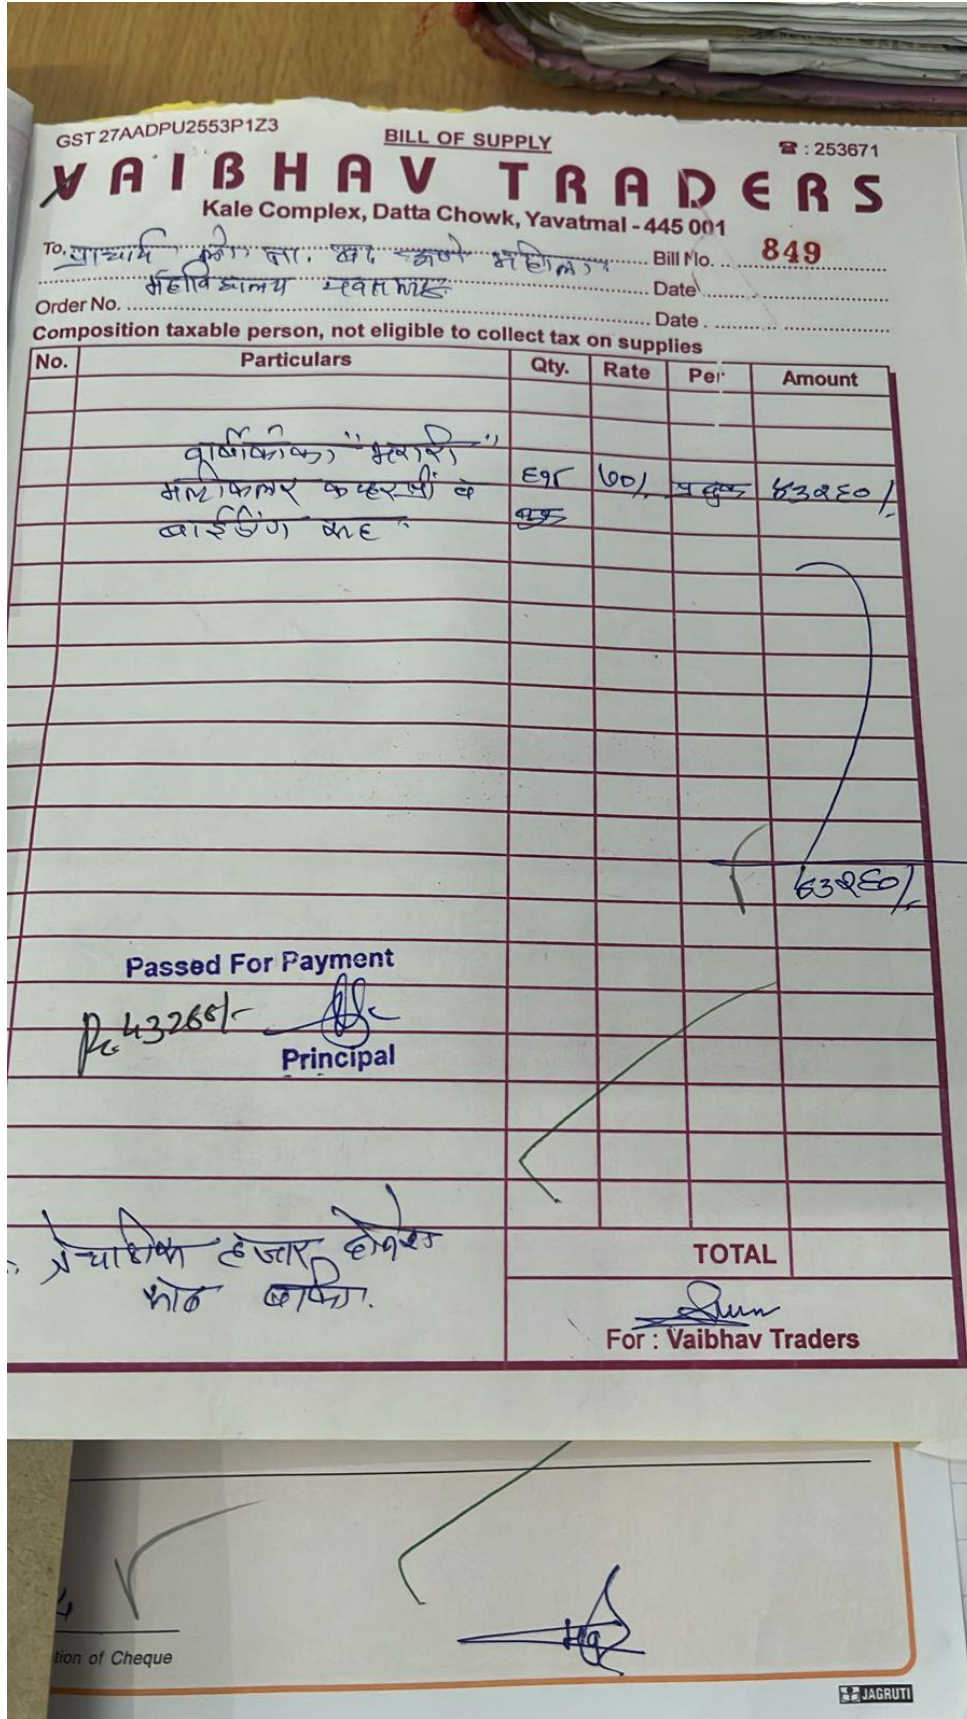 GST 27AADPU2553P1Z3
BILL OF SUPPLY
☎ : 253671
VAIBHAV TRADERS
Kale Complex, Datta Chowk, Yavatmal - 445 001
To, प्राचार्य महिला Bill No. 849
महाविद्यालय यवतमाळ Date
Order No. Date
Composition taxable person, not eligible to collect tax on supplies
No. Particulars Qty. Rate Per Amount
वार्षिकांक " "
मल्टीकलर व ६१८ ७०/- प्र बुक ४३२६०/-
बाईंडींग सह बुक
४३२६०/-
Passed For Payment
Rs. 43260/-
Principal
त्रेचाळीस हजार दोनशे
साठ बाकी.
TOTAL
For : Vaibhav Traders
tion of Cheque
JAGRUTI